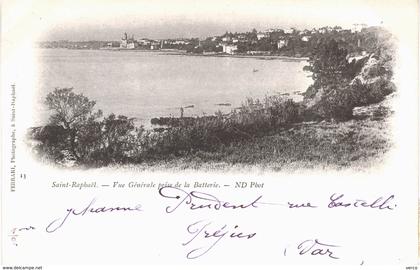 FERRARI, Photographe, à Saint-Raphaël.
Saint-Raphaël. — Vue Générale prise de la Batterie. — ND Phot
Johanna Prudent, rue Castelli
Fréjus
Var
www.delcampe.net